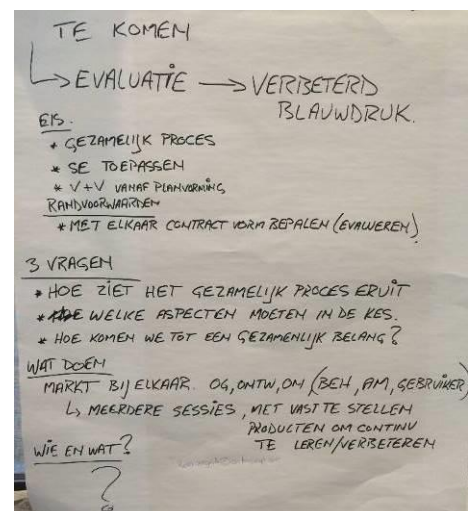 TE KOMEN
↳ EVALUATIE → VERBETERD
BLAUWDRUK.
EIS.
* GEZAMELIJK PROCES
* SE TOEPASSEN
* V+V VANAF PLANVORMING
RANDVOORWAARDEN
* MET ELKAAR CONTRACT VORM BEPALEN (EVALUEREN)
3 VRAGEN
* HOE ZIET HET GEZAMELIJK PROCES ERUIT
* WELKE ASPECTEN MOETEN IN DE KES.
* HOE KOMEN WE TOT EEN GEZAMENLIJK BELANG?
WAT DOEN
MARKT BIJ ELKAAR. OG, ONTW, ON (BEH, AM, GEBRUIKER)
↳ MEERDERE SESSIES, MET VAST TE STELLEN
PRODUCTEN OM CONTINU
TE LEREN/VERBETEREN
WIE EN WAT?
?